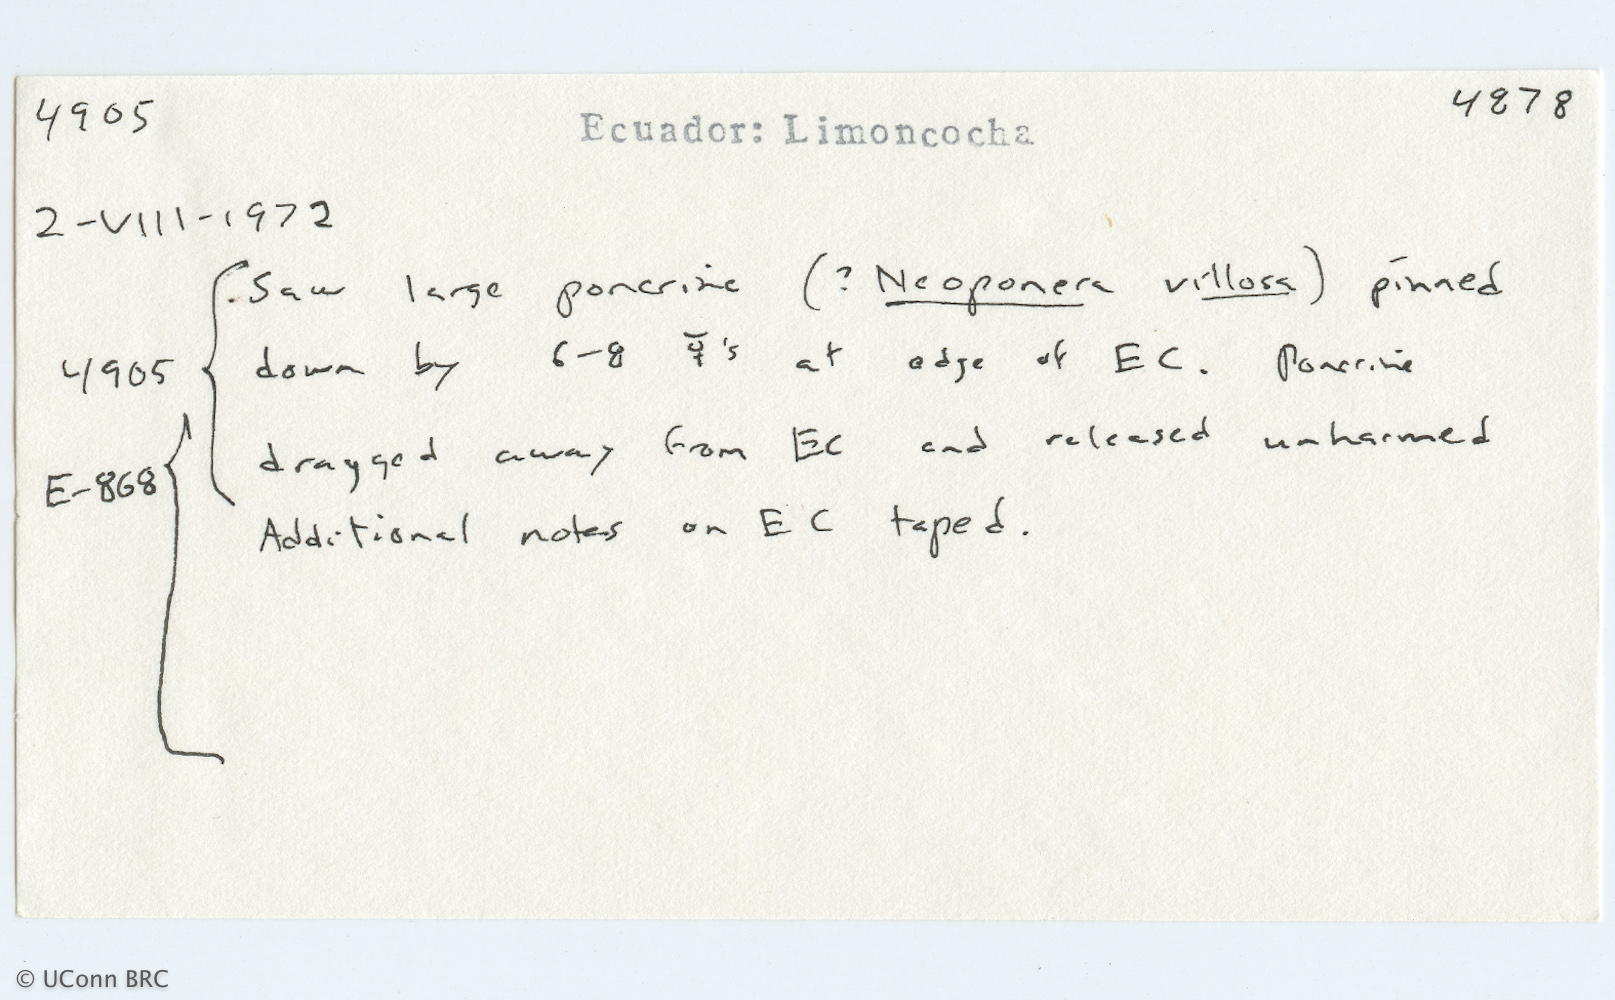 4905 Ecuador: Limoncocha 4878
2-VIII-1972
Saw large ponerine (? Neoponera villosa) pinned
4905 down by 6-8 ☿'s at edge of EC. Ponerine
dragged away from EC and released unharmed
E-868
Additional notes on EC taped.
© UConn BRC